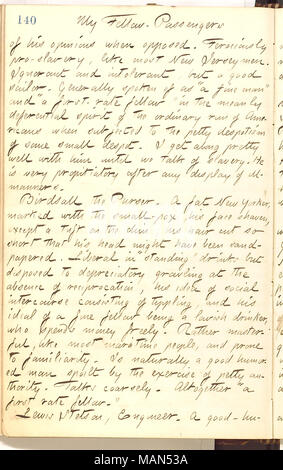 140
My Fellow-Passengers
of his opinions when opposed. Ferociously
pro-slavery, like most New Jersey men.
Ignorant and intolerant, but a good
sailor. Generally spoken of as "a fine man"
and "a first rate fellow" in the meanly
deferential spirit of the ordinary run of Ame-
ricans when subjected to the petty despotism
of some small despot. I get along pretty
well with him until we talk of slavery. He
is very propitiatory after any display of ill-
manners.
Birdsall the Purser. A fat New Yorker,
marked with the small-pox, his face shaven,
except a tuft on the chin, his hair cut so
short that his head might have been sand-
papered. Liberal in "standing" drinks but
disposed to depreciatory growling at the
absence of reciprocation, his idea of social
intercourse consisting of tippling, and his
ideal of a fine fellow being a lavish drinker,
who spends money freely. Rather master-
ful, like most maritime people, and prone
to familiarity. Is naturally a good humor-
ed man spoilt by the exercise of petty au-
thority. Talks coarsely. Altogether "a
first rate fellow."
Lewis Engineer. A good-hu-
alamy
Image ID: MAN53A
www.alamy.com